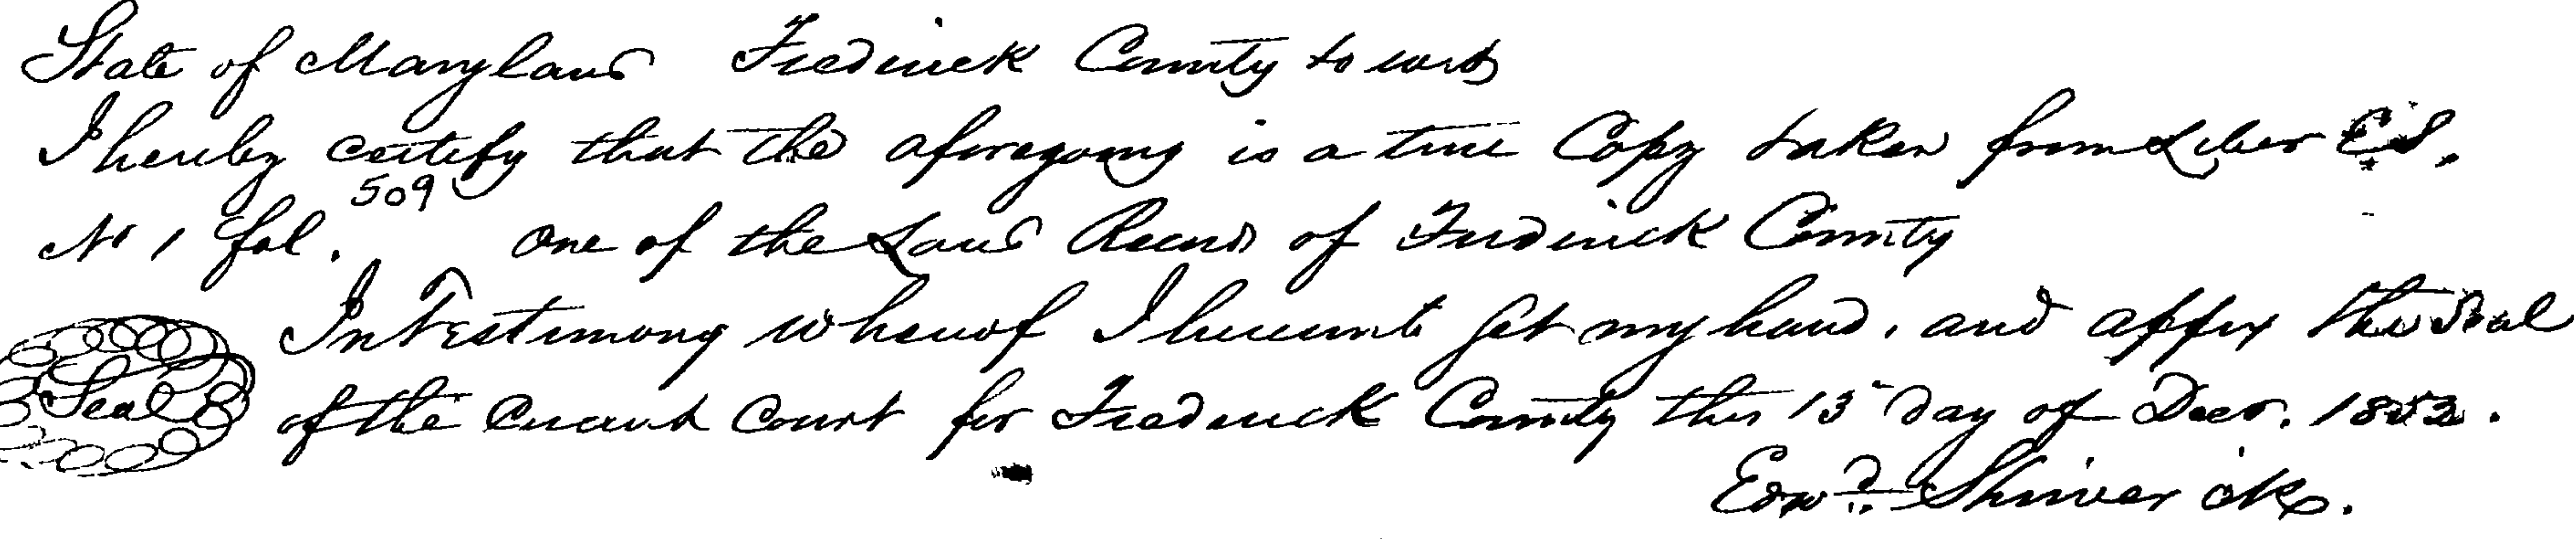 State of Maryland Frederick County to wit
I hereby certify that the aforegoing is a true Copy taken from Liber E S.
No 1 fol. 509 One of the Land Records of Frederick County
In Testimony whereof I hereunto Set my hand, and affix the Seal
Seal
of the Circuit Court for Frederick County this 15 day of Decr. 1852.
Edwd. Shriver Clk.